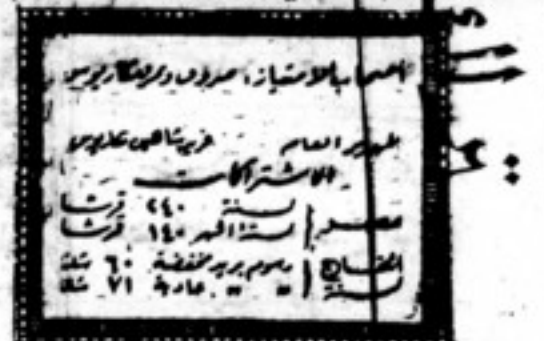 أصحاب الامتياز: صروف ونمر ومكاريوس
المدير العام فريد شاهين مكاريوس
الاشتراكات
مصر لسنة ٢٤٠ قرشا
لستة أشهر ١٤٠ قرشا
الخارج رسوم بريد مخفضة ٦٠ شلنا
لسنة " " عادية ٧١ شلنا